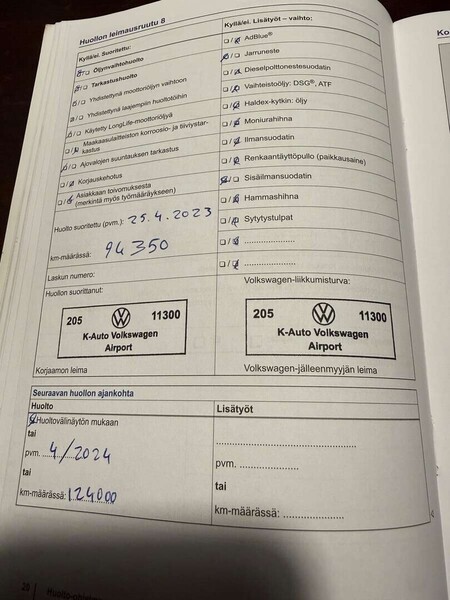 Huollon leimausruutu 8
Kyllä/ei. Suoritettu:
Öljynvaihtohuolto
Tarkastushuolto
Yhdistettynä moottoriöljyn vaihtoon
Yhdistettynä laajempiin huoltotöihin
Käytetty LongLife-moottoriöljyä
Maakaasulaitteiston korroosio- ja tiiviystar-
kastus
Ajovalojen suuntauksen tarkastus
Korjauskehotus
Asiakkaan toivomuksesta
(merkintä myös työmääräykseen)
Huolto suoritettu (pvm.): 25.4.2023
km-määrässä: 94350
Laskun numero:
Huollon suorittanut:
205 11300
K-Auto Volkswagen
Airport
Korjaamon leima
Kyllä/ei. Lisätyöt – vaihto:
AdBlue®
Jarruneste
Dieselpolttonestesuodatin
Vaihteistoöljy: DSG®, ATF
Haldex-kytkin: öljy
Moniurahihna
Ilmansuodatin
Renkaantäyttöpullo (paikkausaine)
Sisäilmansuodatin
Hammashihna
Sytytystulpat
.....................
.....................
Volkswagen-liikkumisturva:
205 11300
K-Auto Volkswagen
Airport
Volkswagen-jälleenmyyjän leima
Seuraavan huollon ajankohta
Huolto
Huoltovälinäytön mukaan
tai
pvm. 4/2024
tai
km-määrässä: 124000
Lisätyöt
..........................................
pvm. ..................
tai
km-määrässä: ..................
28